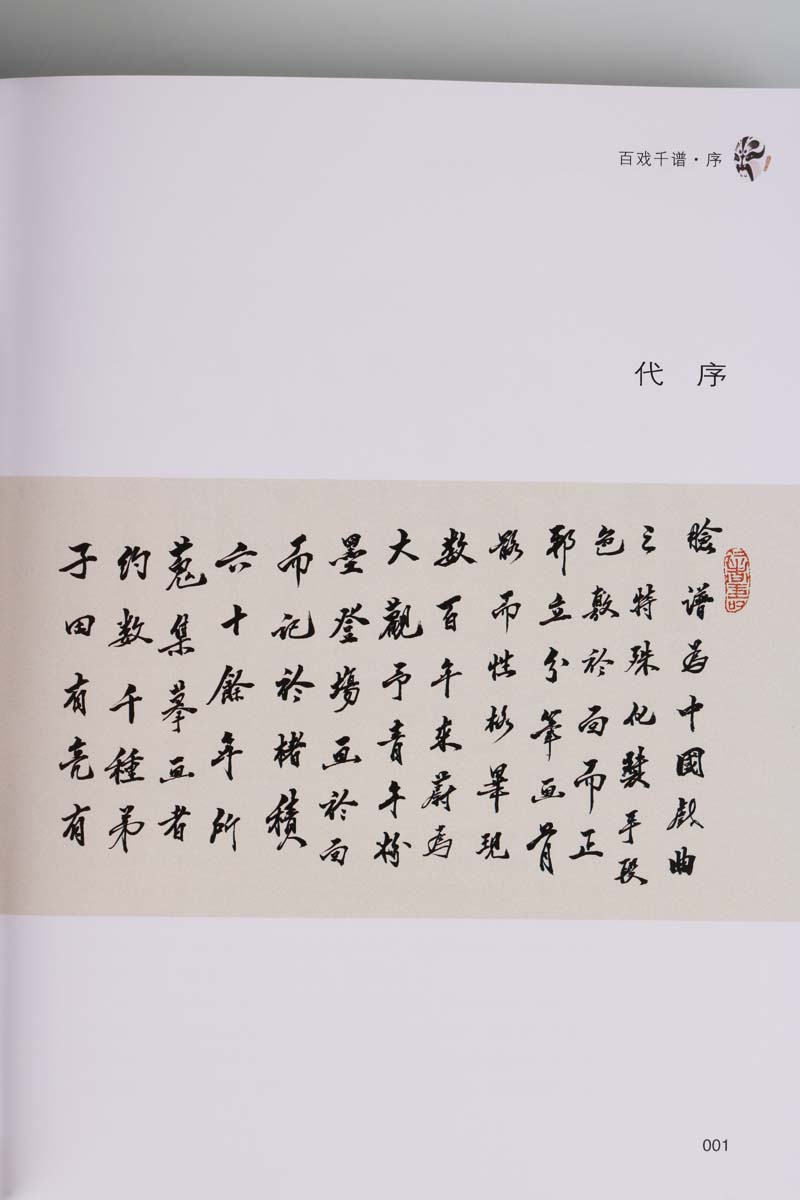 百戏千谱·序
代序
臉譜為中國戲曲
之特殊化裝手段
色敷於面而正
邪立分筆画骨
骼而性格畢現
数百年來蔚為
大觀予青年粉
墨登場画於面
而記於楮積
六十餘年所
蒐集摹画者
约数千種弟
子田有亮有
001